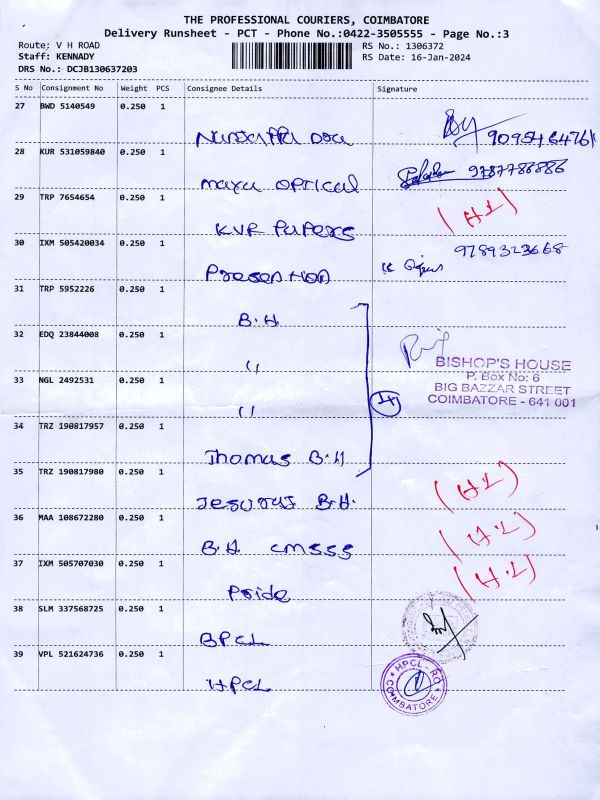 THE PROFESSIONAL COURIERS, COIMBATORE
Delivery Runsheet - PCT - Phone No.:0422-3505555 - Page No.:3
Route: V H ROAD
RS No.: 1306372
Staff: KENNADY
RS Date: 16-Jan-2024
DRS No.: DCJB130637203
S No Consignment No Weight PCS Consignee Details Signature
27 BWD 5140549 0.250 1
28 KUR 531059840 0.250 1
maya optical 9787786886
29 TRP 7654654 0.250 1
KVR Papers
30 IXM 505420034 0.250 1
9789323668
31 TRP 5952226 0.250 1
B.H
32 EDQ 23844008 0.250 1
"
33 NGL 2492531 0.250 1
"
BISHOP'S HOUSE
P. Box No: 6
BIG BAZZAR STREET
COIMBATORE - 641 001
34 TRZ 190817957 0.250 1
Thomas B.H
35 TRZ 190817980 0.250 1
B.H.
36 MAA 108672280 0.250 1
B.H. cmsss
37 IXM 505707030 0.250 1
Pride
38 SLM 337568725 0.250 1
BPCL
39 VPL 521624736 0.250 1
HPCL
HPCL - RO
COIMBATORE